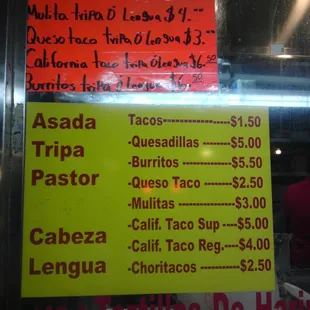 Mulita tripa Ó Lengua $4.00
Queso taco tripa Ó Lengua $3.00
California taco tripa Ó Lengua $6.50
Burritos tripa Ó Lengua $6.50
Asada
Tripa
Pastor
Cabeza
Lengua
Tacos-------------$1.50
-Quesadillas ------$5.00
-Burritos ----------$5.50
-Queso Taco -------$2.50
-Mulitas -----------$3.00
-Calif. Taco Sup ----$5.00
-Calif. Taco Reg.----$4.00
-Choritacos ---------$2.50
Tortillas De Harina